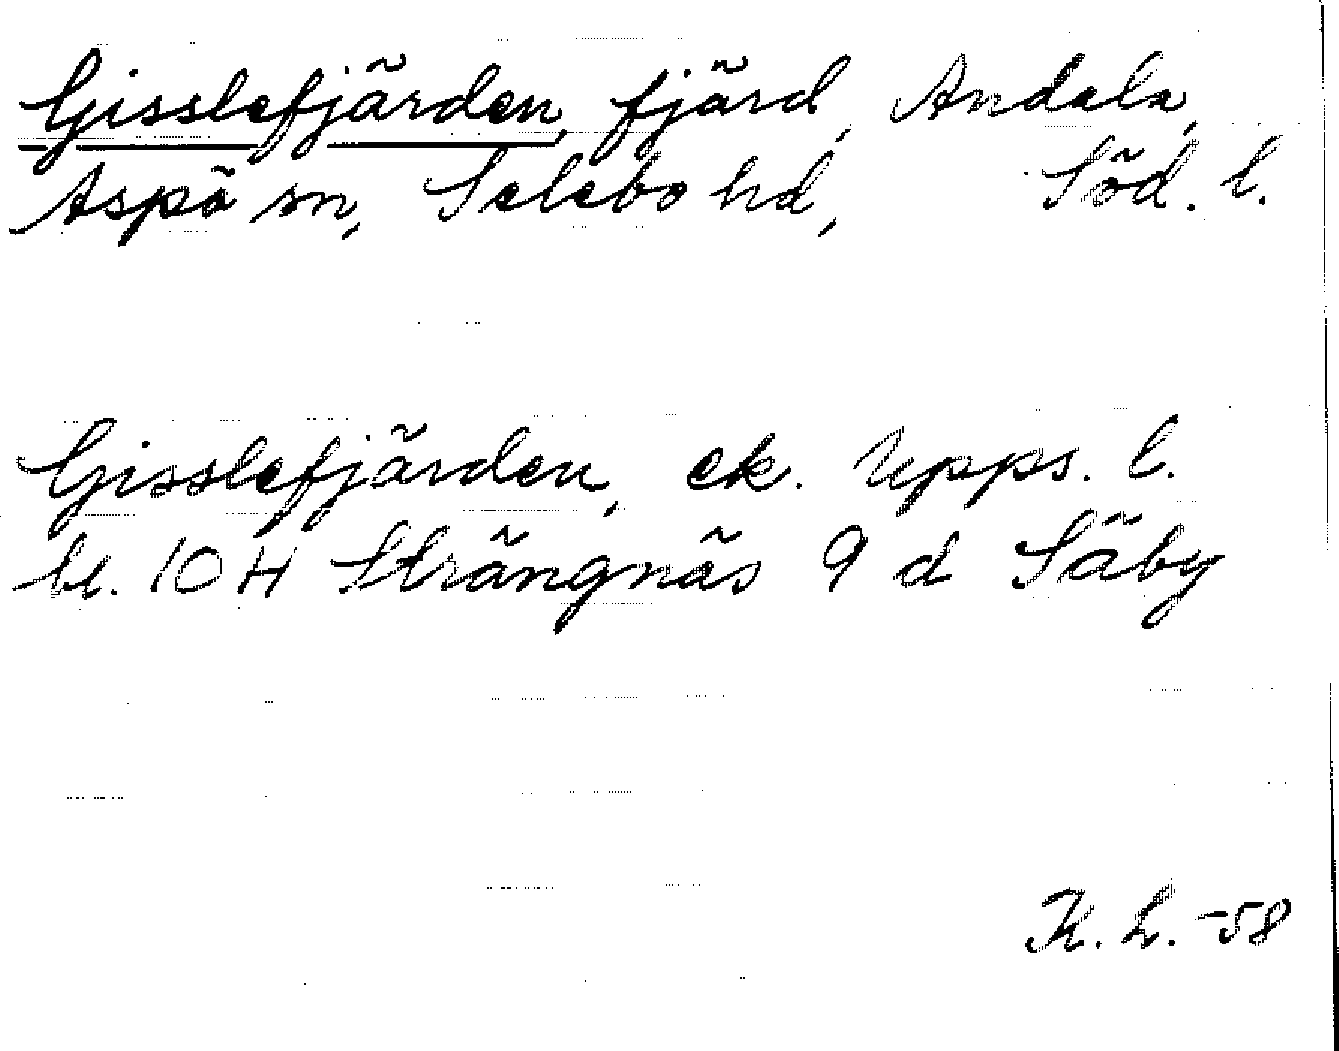 Gisslefjärden, fjärd, Andala,
Aspö sn, Selebo hd, Söd. l.
Gisslefjärden, ek. Upps. l.
bl. 10 H Strängnäs 9 d Säby
K. L. -58